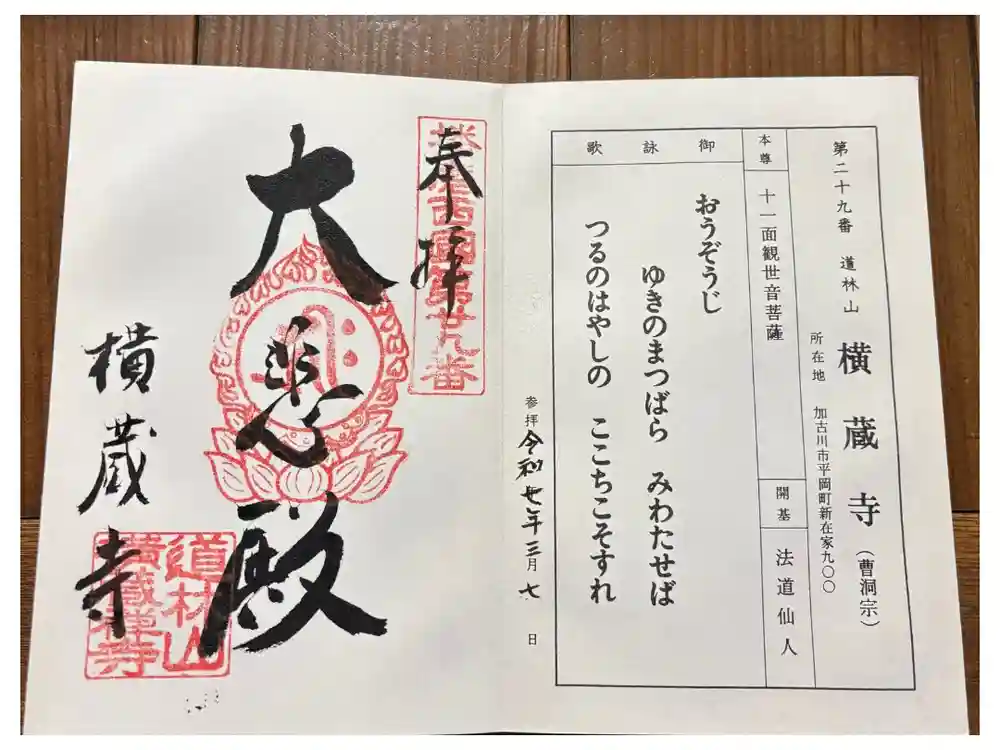 第二十九番 道林山 横蔵寺（曹洞宗）
所在地 加古川市平岡町新在家九〇〇
本尊 十一面観世音菩薩
開基 法道仙人
御詠歌
おうぞうじ
ゆきのまつばら みわたせば
つるのはやしの ここちこそすれ
奉拝
播磨西國第廿九番
参拝 令和七年三月七日
大悲殿
横蔵寺
道林山
横蔵禅寺